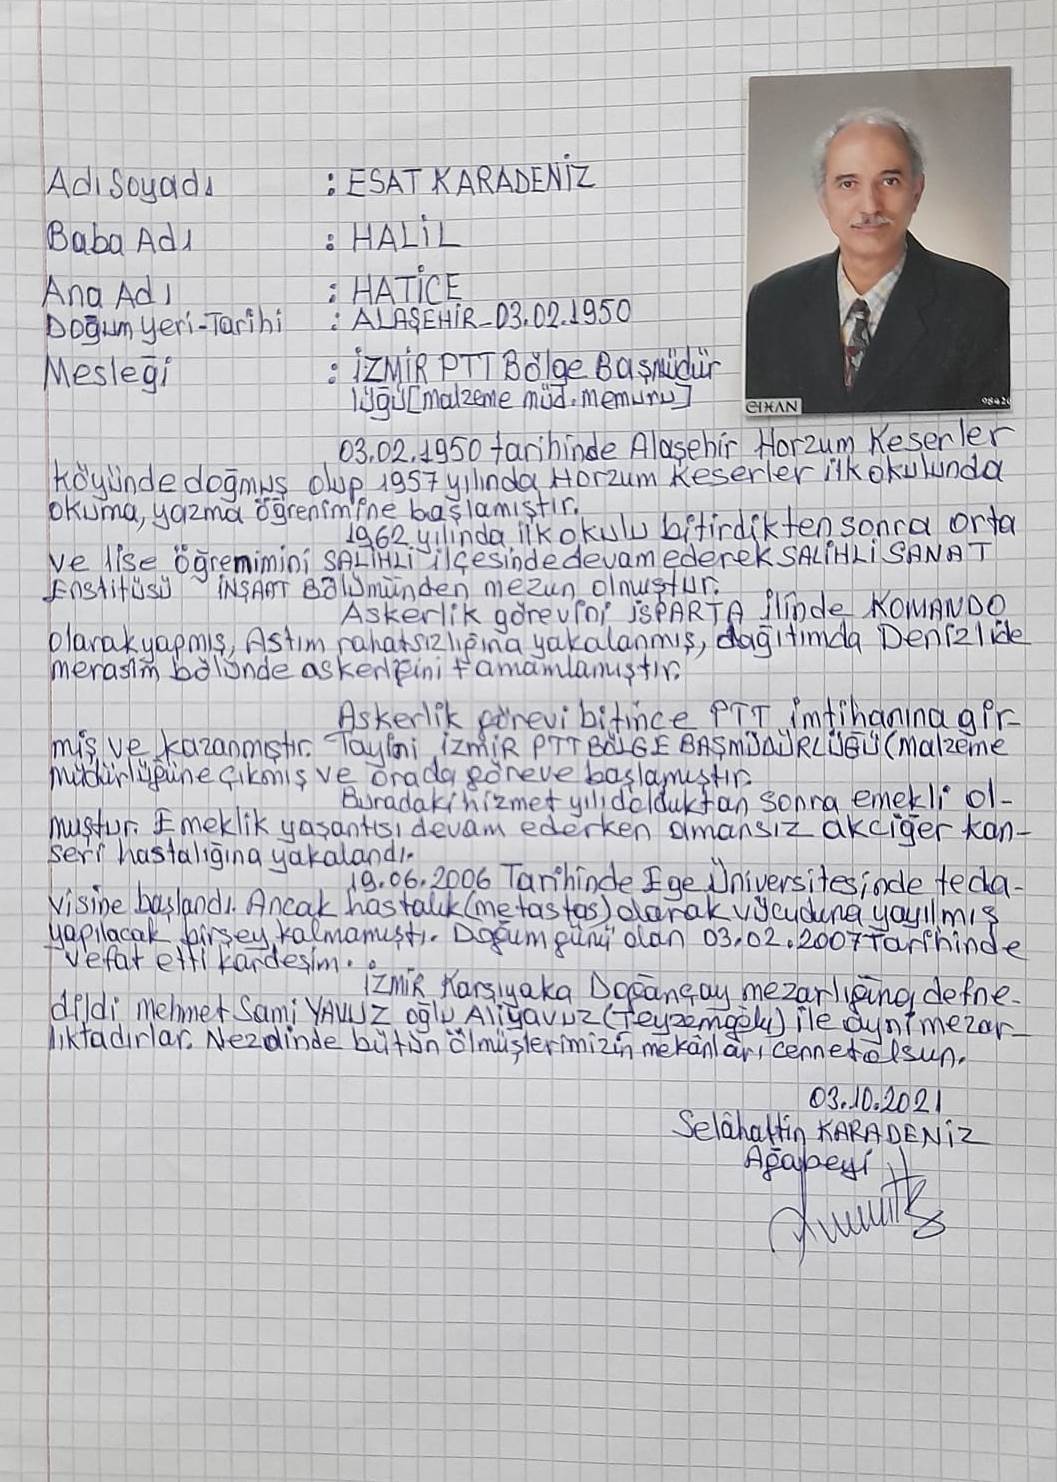 Adı Soyadı : ESAT KARADENİZ
Baba Adı : HALİL
Ana Adı : HATİCE
Doğum yeri-Tarihi : ALAŞEHİR-03.02.1950
Mesleği : İZMİR PTT Bölge Başmüdür
lüğü[malzeme müd.memuru]
CİHAN 98420
03.02.1950 tarihinde Alaşehir Horzum Keserler
Köyünde doğmuş olup 1957 yılında Horzum Keserler ilkokulunda
okuma, yazma öğrenimine başlamıştır.
1962 yılında ilkokulu bitirdikten sonra orta
ve lise öğremimini SALİHLİ ilçesinde devam ederek SALİHLİ SANAT
Enstitüsü İNŞAAT Bölümünden mezun olmuştur.
Askerlik görevini ISPARTA ilinde KOMANDO
olarak yapmış, Astım rahatsızlığına yakalanmış, dağıtımda Denizlide
merasim bölünde askerliğini tamamlamıştır.
Askerlik görevi bitince PTT imtihanına gir-
miş ve kazanmıştır. Tayini İZMİR PTT BÖLGE BAŞMÜDÜRLÜĞÜ (malzeme
müdürlüğüne çıkmış ve orada göreve başlamıştır.
Buradaki hizmet yılı dolduktan sonra emekli ol-
muştur. Emeklik yaşantısı devam ederken amansız akciğer kan-
seri hastalığına yakalandı.
19.06.2006 Tarihinde Ege Üniversitesinde teda-
visine başlandı. Ancak hastalık (metastas) olarak vücuduna yayılmış
yapılacak birşey kalmamıştı. Doğum günü olan 03.02.2007 Tarihinde
vefat etti kardeşim.
İZMİR Karşıyaka Doğançay mezarlığına defne-
dildi mehmet Sami YAVUZ oğlu Ali yavuz (Teyzemgölu) ile aynı mezar-
lıktadırlar. Nezdinde bütün ölmüşlerimizin mekanları cennet olsun.
03.10.2021
Selâhattin KARADENİZ
Ağabeyi